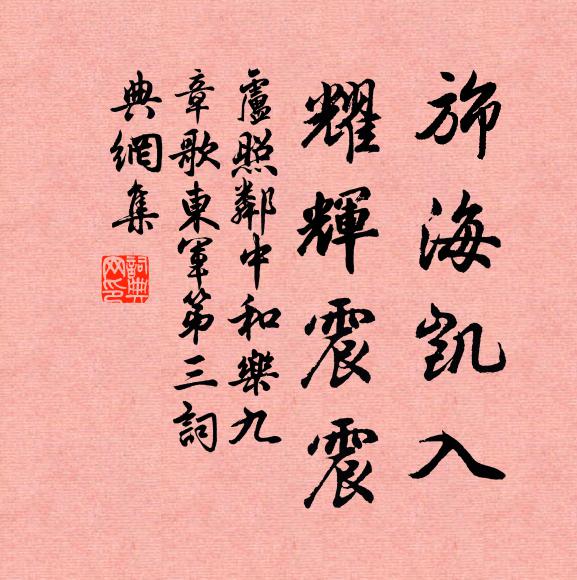 旆海凱入
耀輝震震
盧照鄰中和樂九
章歌東軍第三詞
典網集
詞典
网印